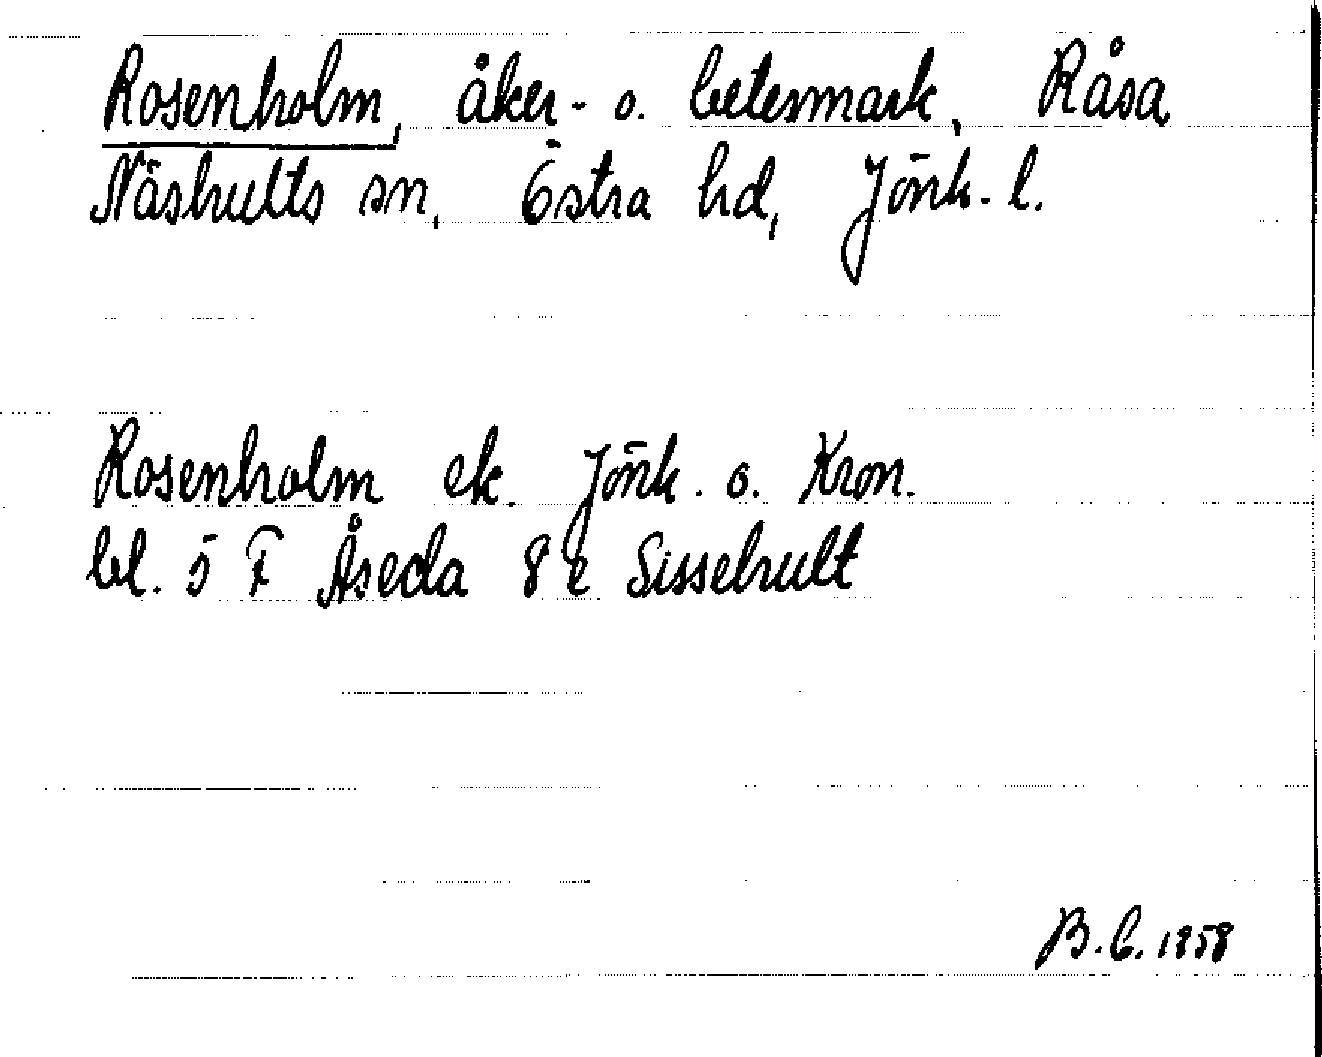 Rosenholm, åker- o. betesmark, Råsa,
Näshults sn, Östra hd, Jönk. l.
Rosenholm ek. Jönk. o. Kron.
bl. 5 F Åseda 8 e Sissehult
B.C. 1958